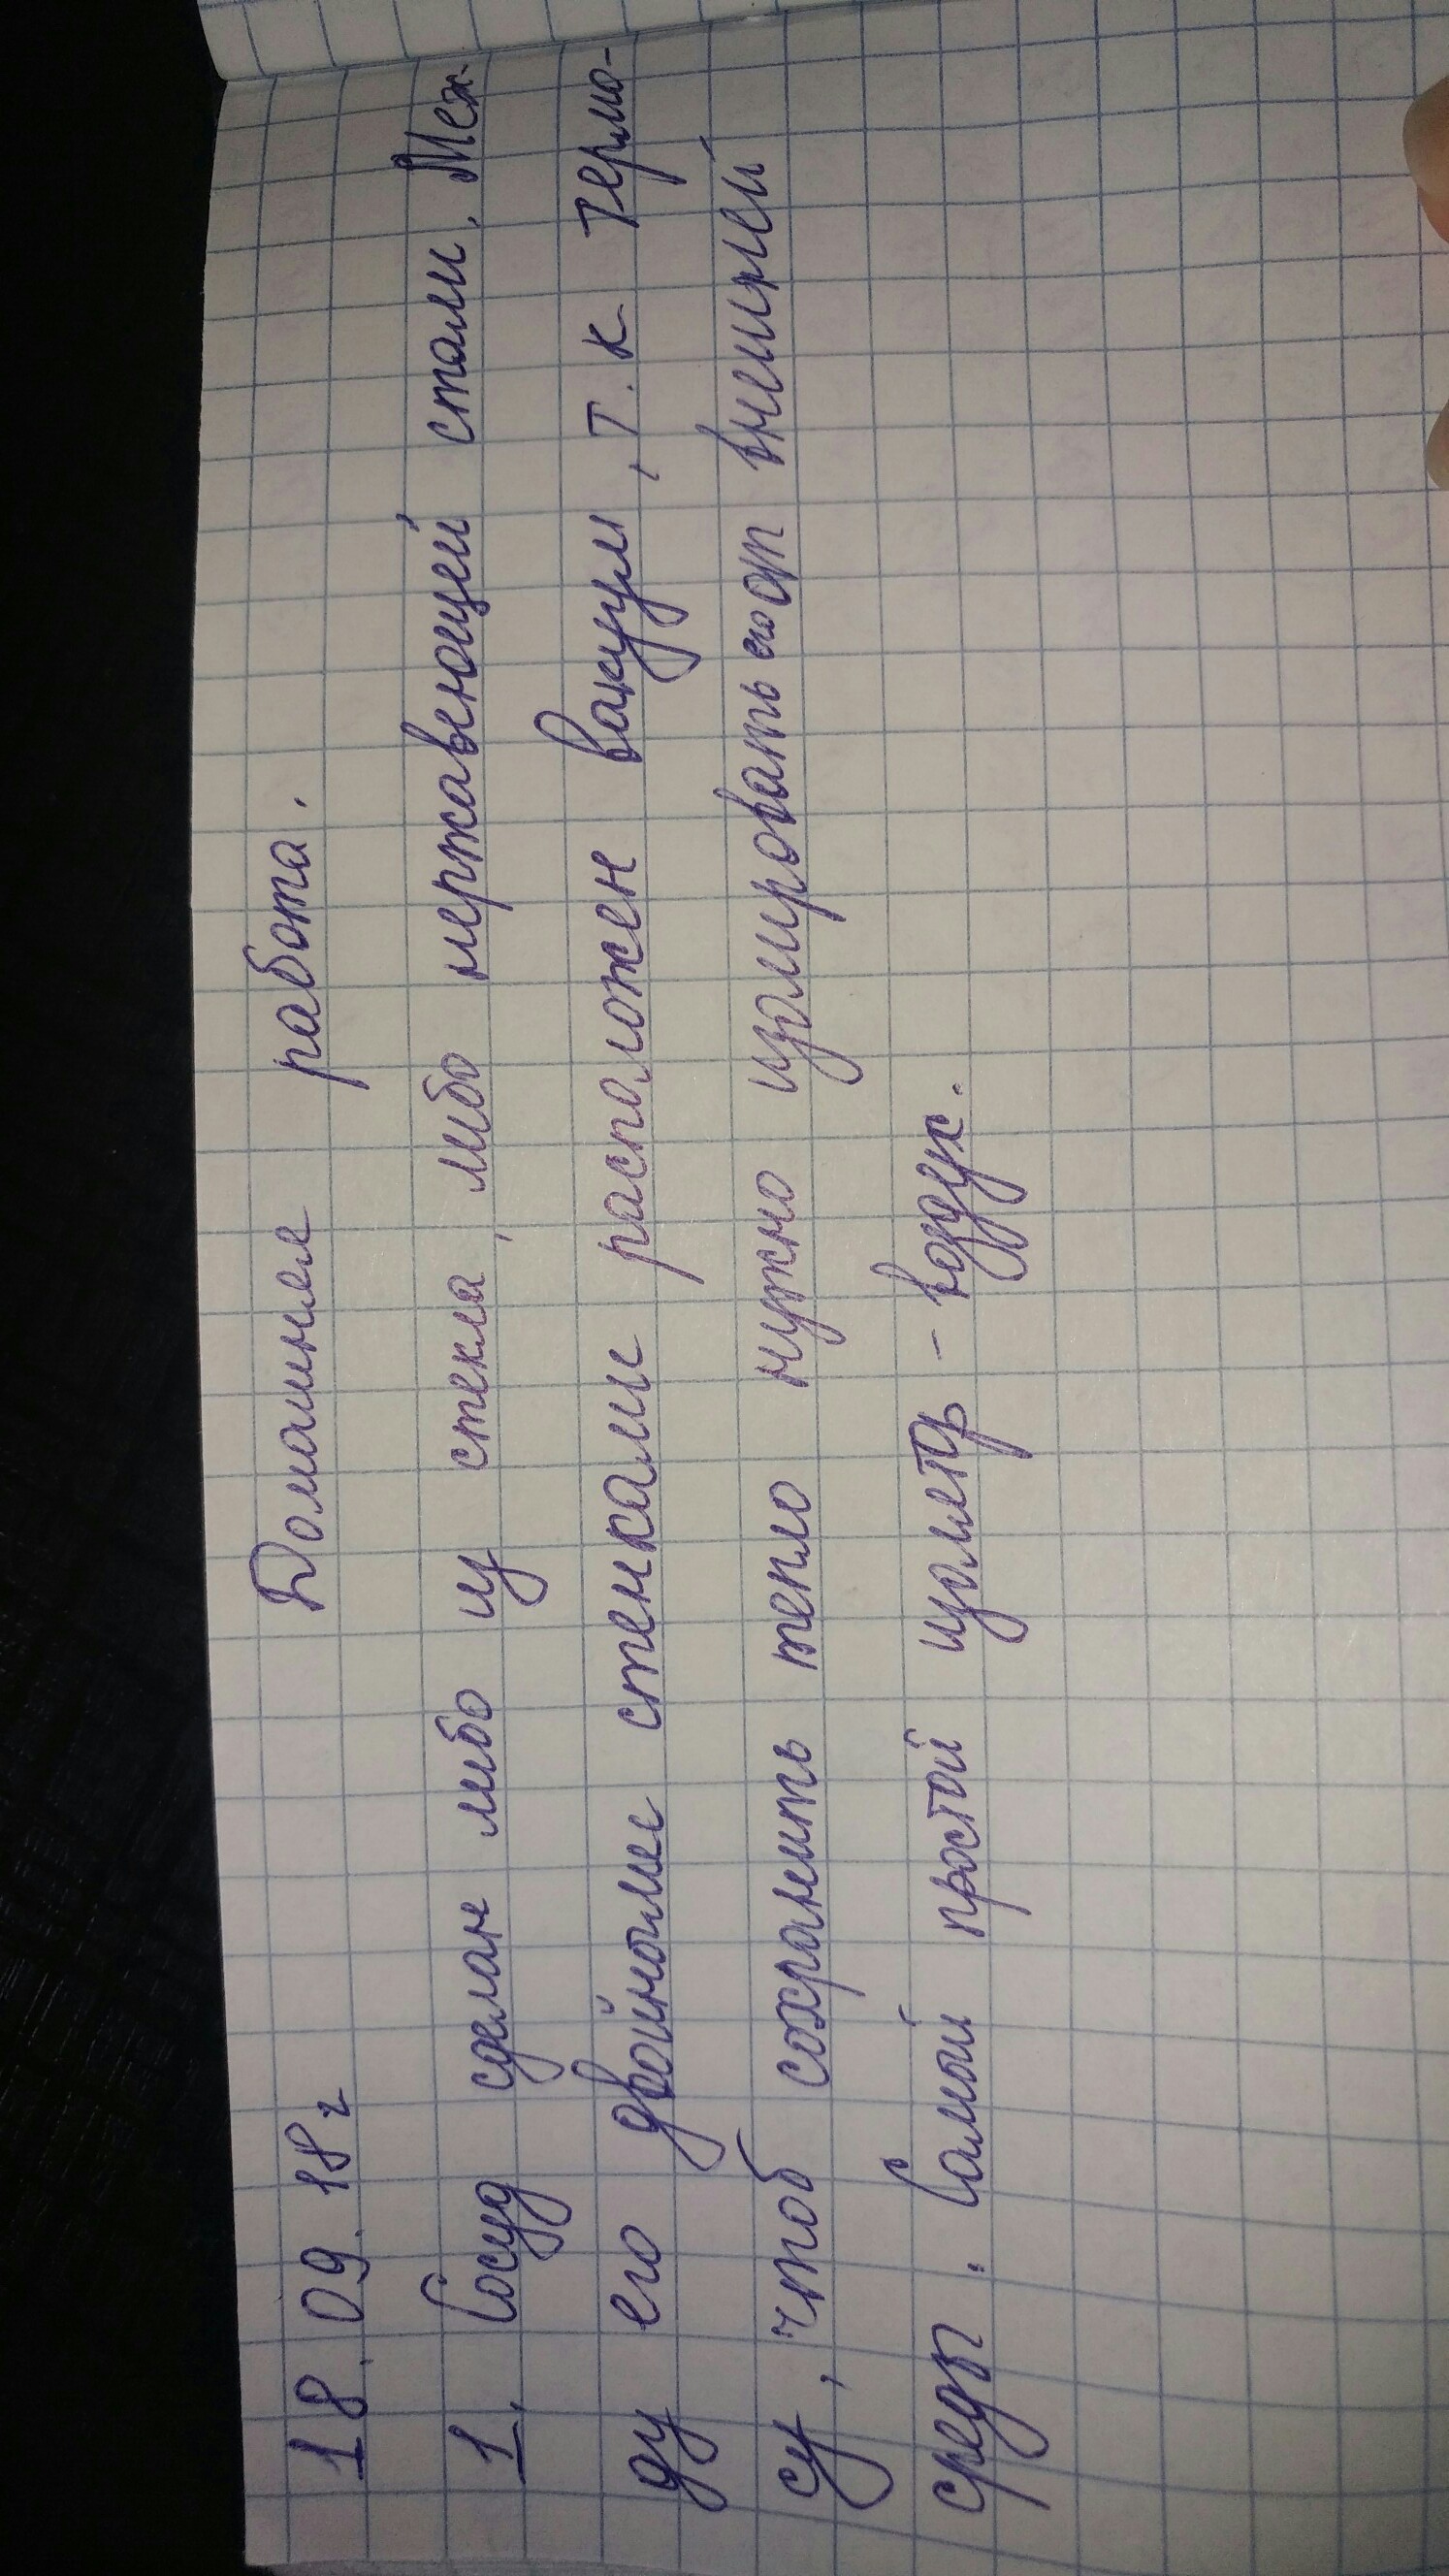 18.09.18г Домашняя работа.
1. Сосуд сделан либо из стекла, либо нержавеющей стали. Меж-
ду его двойными стенками расположен вакуум, т.к термо-
су, чтоб сохранить тепло нужно изолировать его от внешней
среды. Самый простой изолятр - воздух.